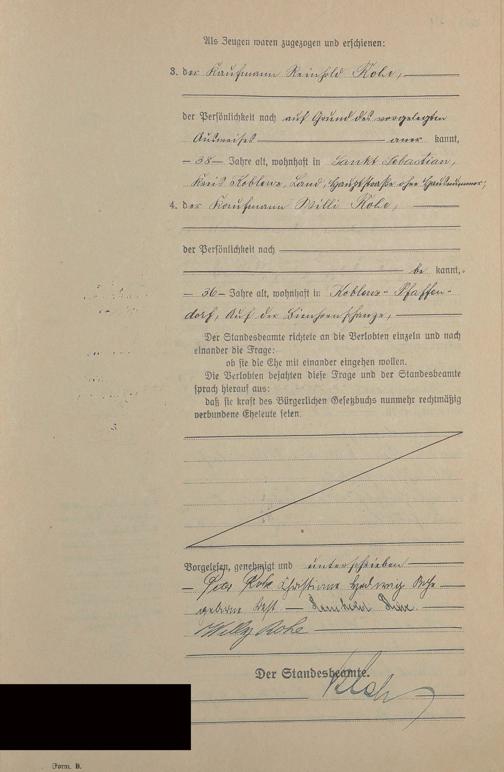 Als Zeugen waren zugezogen und erschienen:
3. der Kaufmann Reinhold Rohe,
der Persönlichkeit nach auf Grund des vorgelegten
Ausweises aner kannt,
38 Jahre alt, wohnhaft in Sankt Sebastian,
Kreis Koblenz, Land, Hauptstraße ohne Hausnummer;
4. der Kaufmann Willi Rohe,
der Persönlichkeit nach
be kannt,
36 Jahre alt, wohnhaft in Koblenz-Pfaffen-
dorf, Auf der Bienhornschanze,
Der Standesbeamte richtete an die Verlobten einzeln und nach
einander die Frage:
ob sie die Ehe mit einander eingehen wollen.
Die Verlobten bejahten diese Frage und der Standesbeamte
sprach hierauf aus:
daß sie kraft des Bürgerlichen Gesetzbuchs nunmehr rechtmäßig
verbundene Eheleute seien.
Vorgelesen, genehmigt und unterschrieben
Rohe Christiane Hedwig Rohe
geborne
Willy Rohe
Der Standesbeamte.
Form. B.